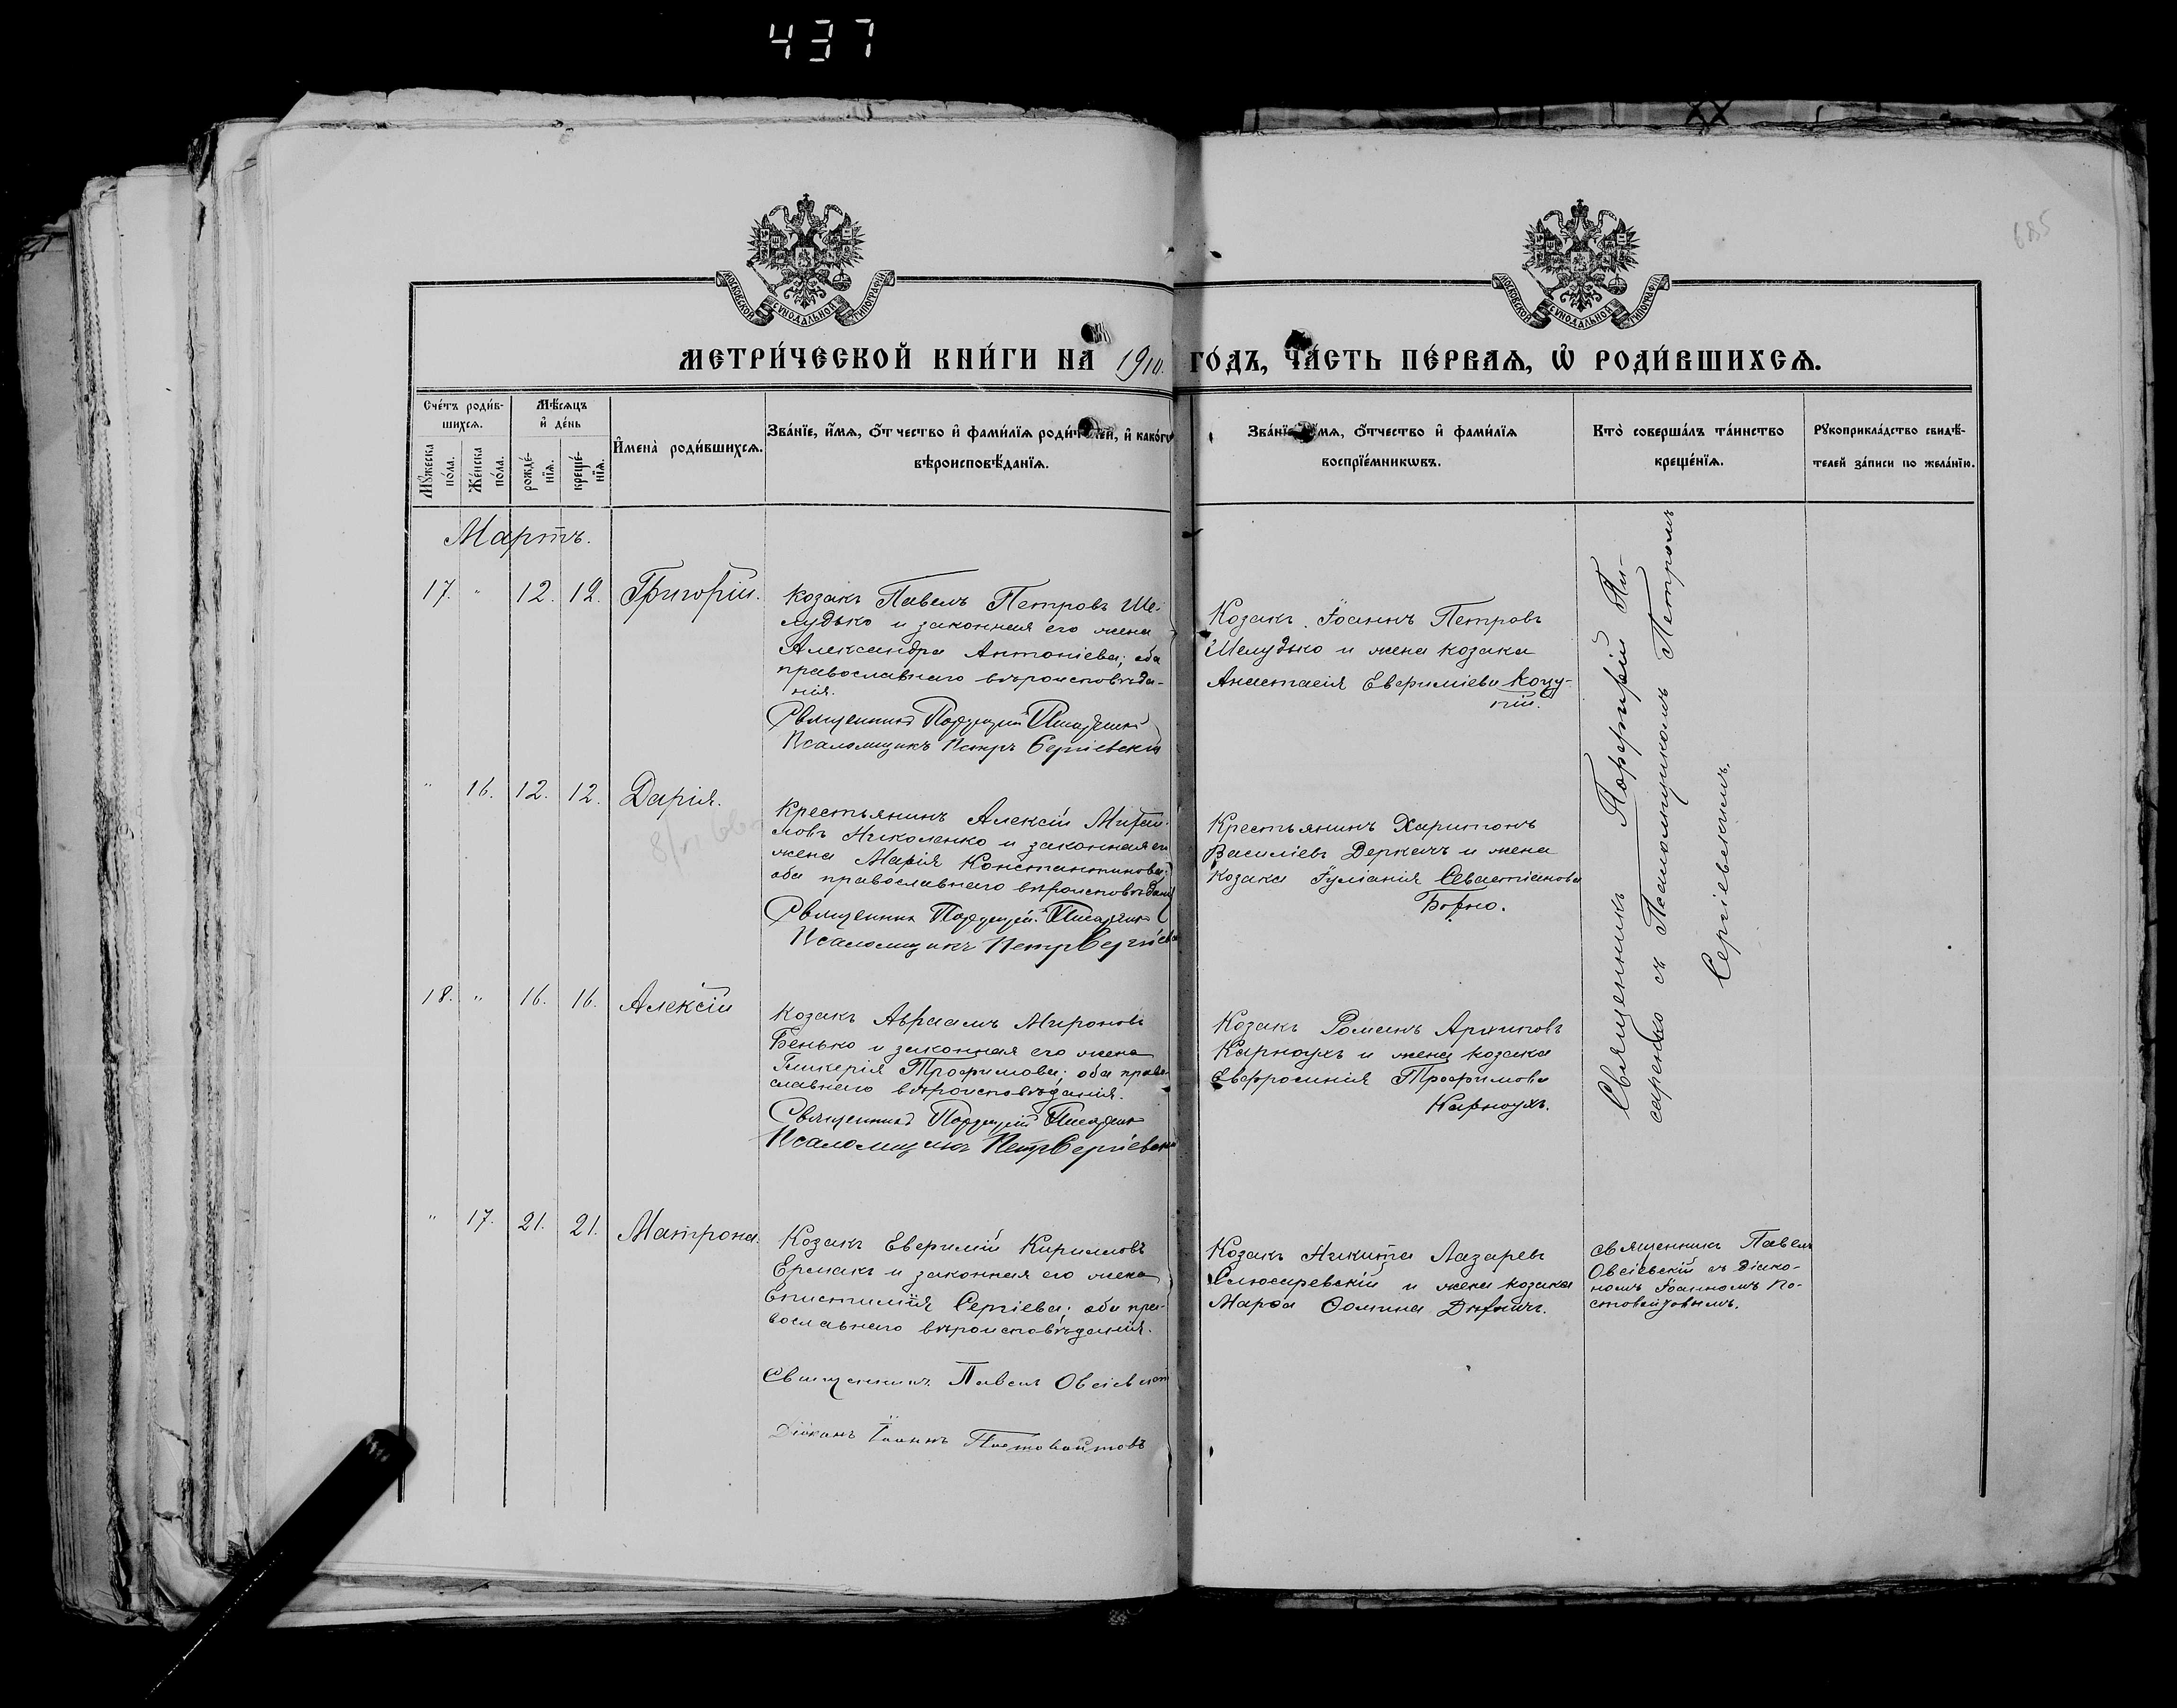 437
685
МОСКОВСКОЙ СѴНОДАЛЬНОЙ ТИПОГРАФІИ
МОСКОВСКОЙ СѴНОДАЛЬНОЙ ТИПОГРАФІИ
МЕТРИ́ЧЕСКОЙ КНИ́ГИ НА 1910. ГО́ДЪ, ЧА́СТЬ ПЕ́РВАѦ, Ѡ РОДИ́ВШИХСѦ.
Сче́тъ роди́в-
шихсѧ.
Мꙋжеска по́ла.
Же́нска по́ла.
Мѣ́сѧцъ
и҆ де́нь
рожде́-
нїѧ.
креще́-
нїѧ.
И҆мена̀ роди́вшихсѧ.
Зва́нїе, и҆́мѧ, ѻ҆́тчество и҆ фами́лїѧ роди́телей, и҆ како́гѡ
вѣроисповѣ́данїѧ.
Зва́нїе, и҆́мѧ, ѻ҆́тчество и҆ фами́лїѧ
воспрїе́мникѡвъ.
Кто̀ соверша́лъ та́инство
креще́нїѧ.
Рꙋкоприкла́дство свидѣ́-
телей за́писи по жела́нїю.
Мартъ.
17. " 12. 12. Григорій.
Козакъ Павелъ Петровъ Ше-
лудько и законная его жена
Александра Антоніева; оба
православнаго вѣроисповѣда-
нія.
Священникъ Порфирій Писаренко
Псаломщикъ Петръ Сергіевскій
Козакъ Іоаннъ Петровъ
Шелудько и жена козака
Анастасія Евфиміева Коцу-
пій.
" 16. 12. 12. Дарія.
Крестьянинъ Алексій Митрофа-
новъ Николенко и законная его
жена Марія Константинова;
оба православнаго вѣроисповѣданія
Священникъ Порфирій Писаренко
Псаломщикъ Петръ Сергіевскій
Крестьянинъ Харитонъ
Василіевъ Деркачъ и жена
козака Іуліанія Севастіанова
18. " 16. 16. Алексій
Козакъ Авраамъ Мироновъ
Бенько и законная его жена
Гликерія Трофимова; оба право-
славнаго вѣроисповѣданія.
Священникъ Порфирій Писаренко
Псаломщикъ Петръ Сергіевскій
Козакъ Романъ Архиповъ
Карноухъ и жена козака
Евфросинія Трофимова
Карноухъ.
Священникъ Порфирій Пи-
саренко съ Псаломщикомъ Петромъ
Сергіевскимъ.
" 17. 21. 21. Матрона.
Козакъ Евфимій Кирилловъ
Ермакъ и законная его жена
Епистимія Сергіева; оба пра-
вославнаго вѣроисповѣданія.
Священникъ Павелъ Овсіевскій
Діаконъ Іоаннъ Постовойтовъ
Козакъ Никита Лазаревъ
Слюсаревскій и жена козака
Марѳа Ѳомина
Священникъ Павелъ
Овсіевскій съ діако-
номъ Іоанномъ По-
стовойтовымъ.